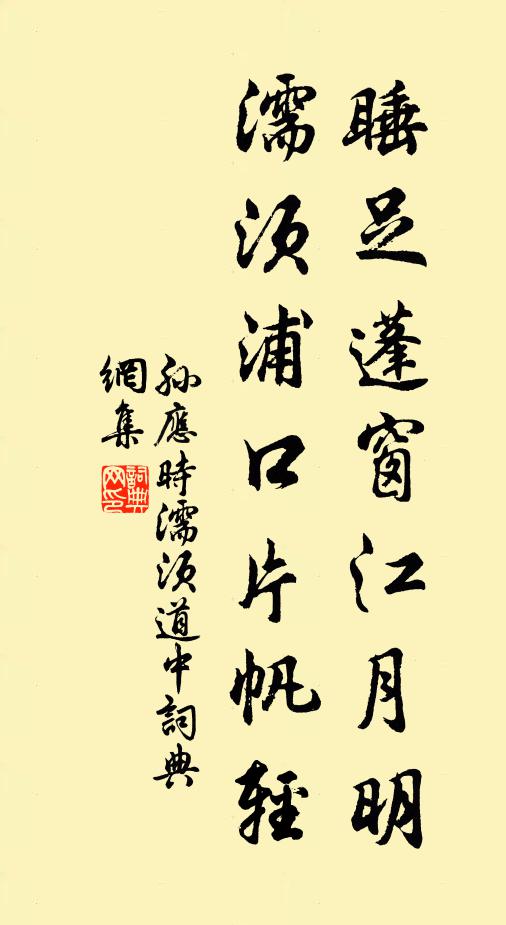 睡足蓬窗江月明
濡须浦口片帆轻
孙應時濡须道中詞典
網集
詞典
网印